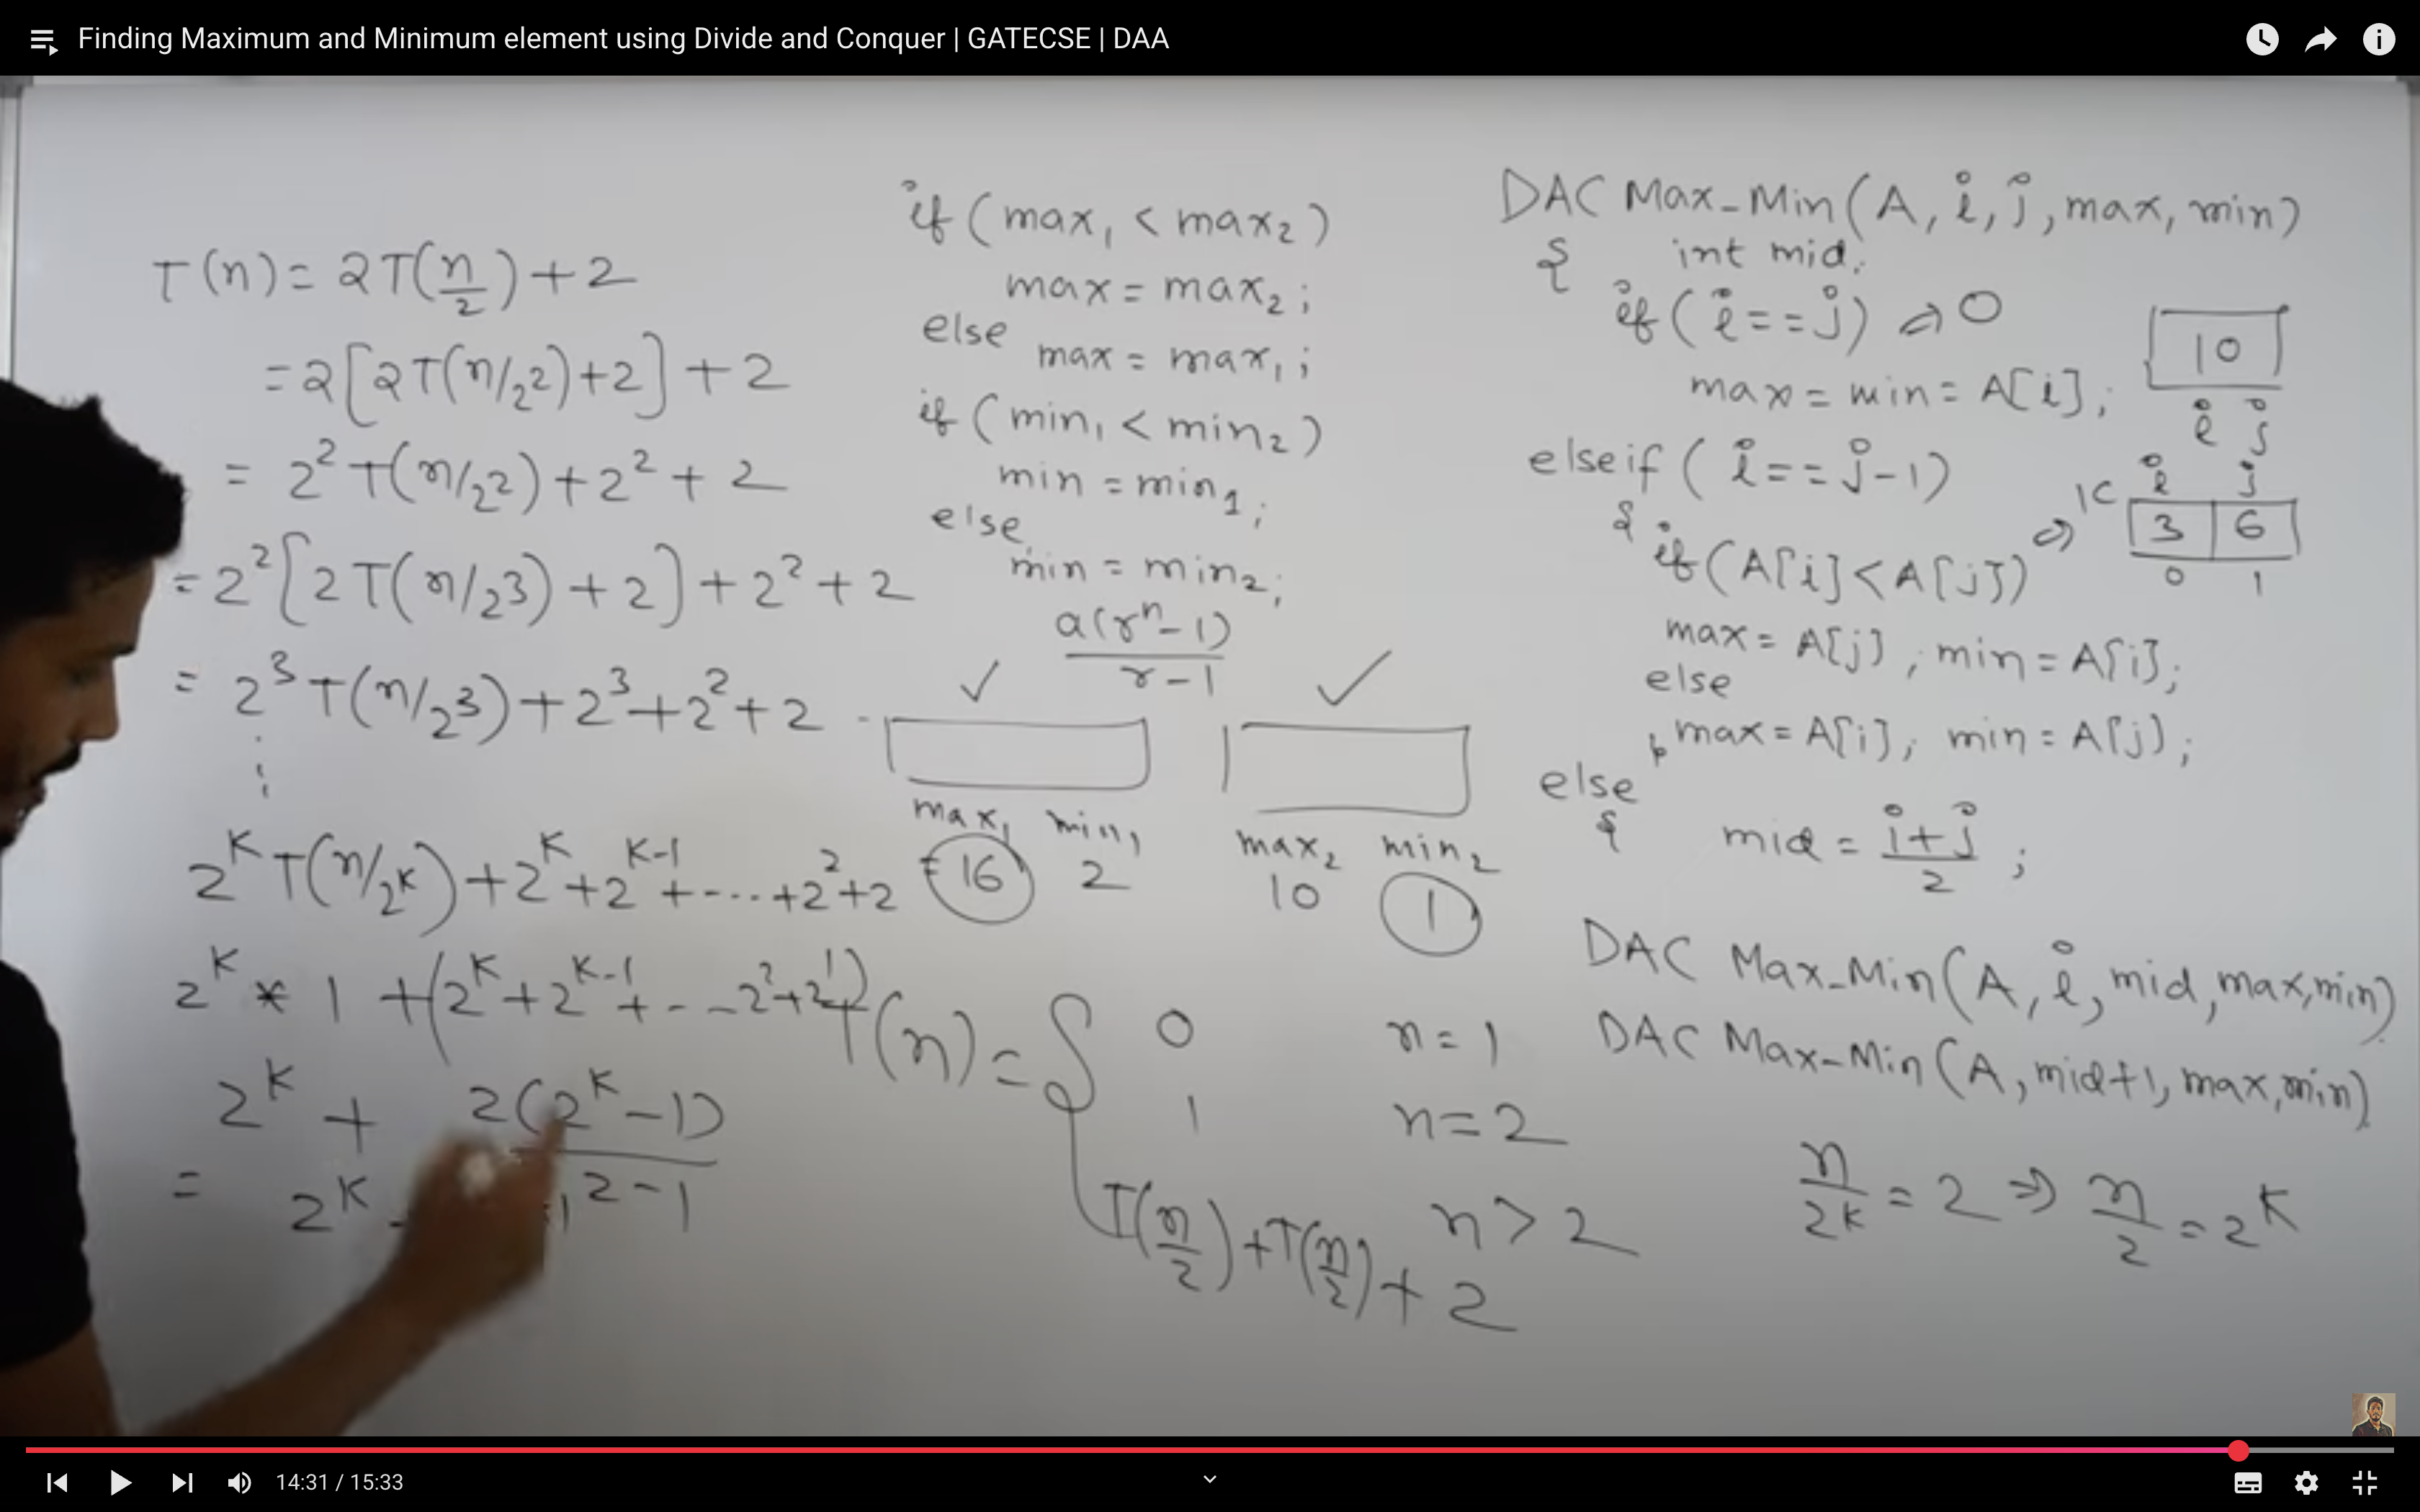 Finding Maximum and Minimum element using Divide and Conquer | GATECSE | DAA
T(n) = 2T(n/2) + 2
= 2[2T(n/2²)+2] + 2
= 2² T(n/2²) + 2² + 2
= 2²[2T(n/2³) + 2] + 2² + 2
= 2³ T(n/2³) + 2³ + 2² + 2
2^K T(n/2^K) + 2^K + 2^(K-1) + ---- + 2² + 2
2^K * 1 + (2^K + 2^(K-1) + -- 2² + 2¹)
2^K + 2(2^K - 1)
2 - 1
= 2^K
if (max₁ < max₂)
max = max₂;
else
max = max₁;
if (min₁ < min₂)
min = min₁;
else
min = min₂;
a(rⁿ - 1)
r - 1
✓ ✓
max₁ min₁ max₂ min₂
16 2 10 1
T(n) = { 0 n = 1
1 n = 2
T(n/2) + T(n/2) + 2 n > 2
DAC Max_Min(A, i, j, max, min)
{ int mid;
if (i == j) ⇒ 0
max = min = A[i];
10
i j
else if (i == j-1)
{
if (A[i] < A[j]) ⇒ 1C
i j
3 6
0 1
max = A[j], min = A[i];
else
max = A[i]; min = A[j];
}
else
{ mid = i+j/2;
DAC Max_Min(A, i, mid, max, min)
DAC Max_Min(A, mid+1, max, min)
n/2^K = 2 ⇒ n/2 = 2^K
14:31 / 15:33